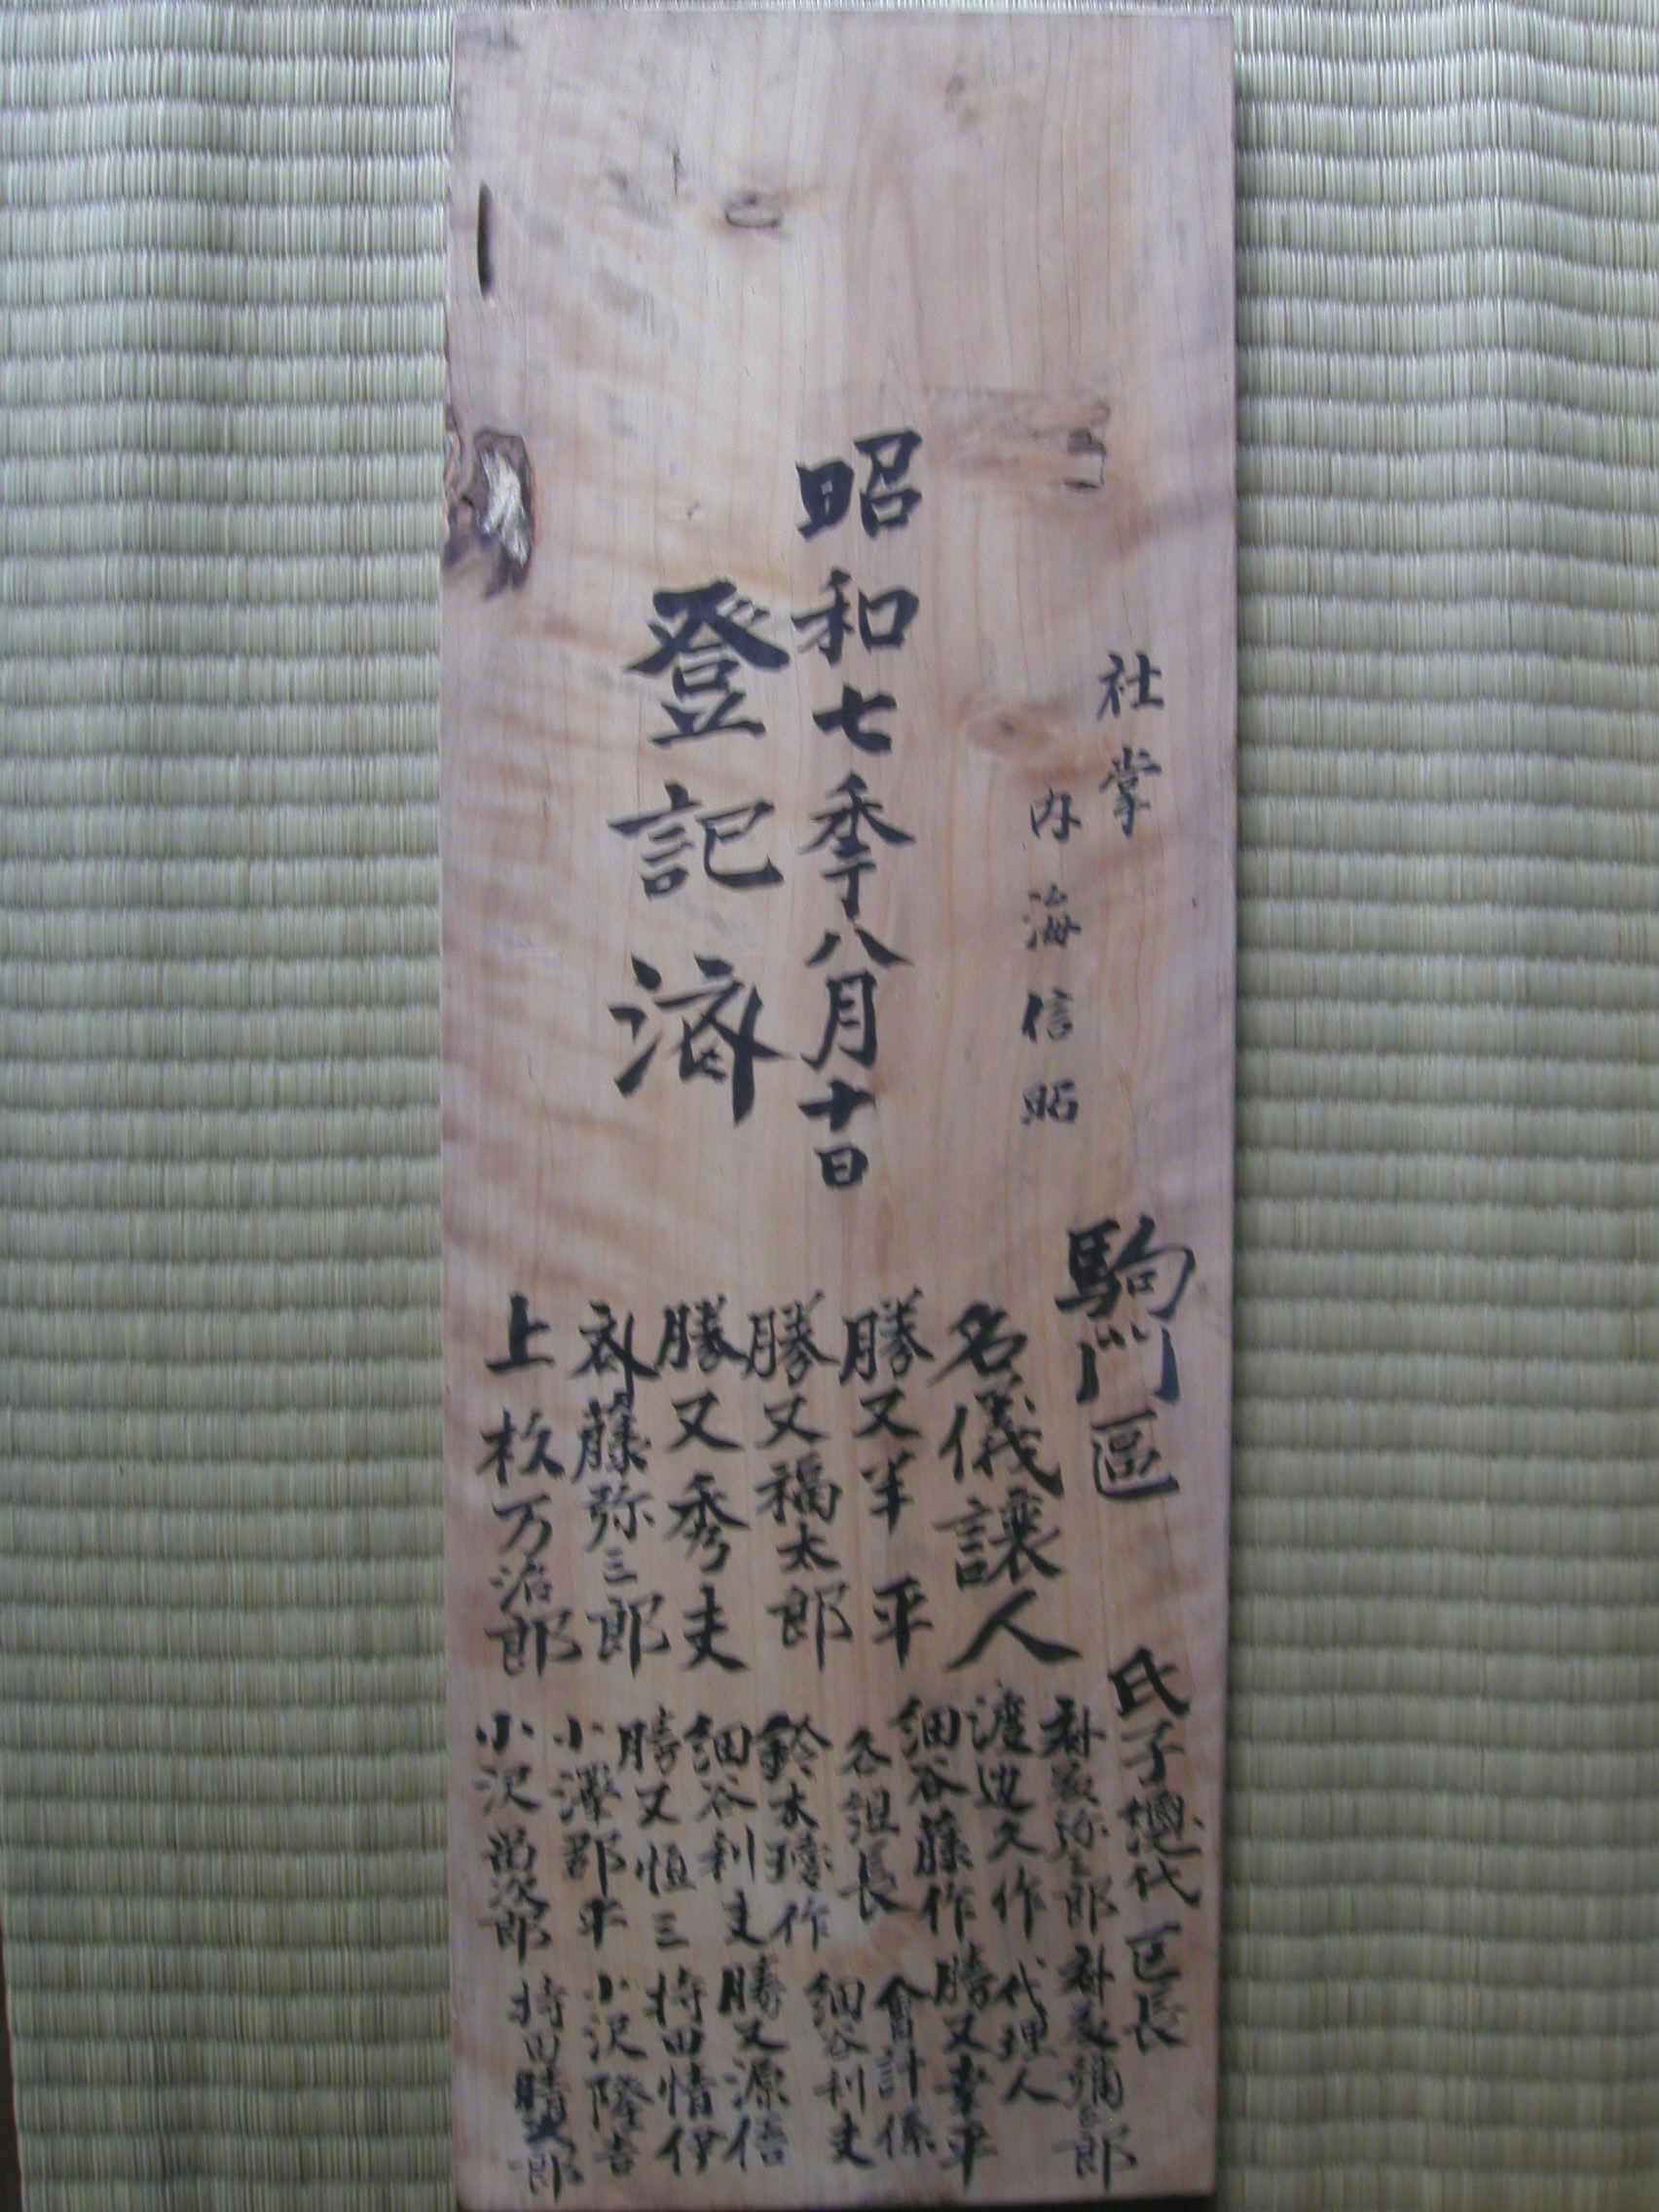 社掌
内海信昭
昭和七季八月十日
登記済
駒門區
名儀讓人
勝又半平
勝又福太郎
勝又秀夫
斎藤弥三郎
上杉万治郎
氏子總代
渡邉久作
細谷藤作
各組長
鈴木 作
細谷利夫
勝又恒三
小澤郡平
小沢 次郎
区長
代理人
勝又幸平
會計係
細谷利夫
勝又源信
持田情
小沢隆吉
持田 郎